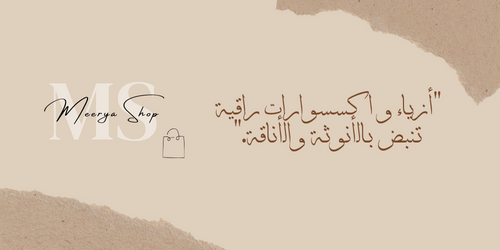 MS
Meerya Shop
"أزياء و اكسسوارات راقية
تنبض بالأنوثة والأناقة."